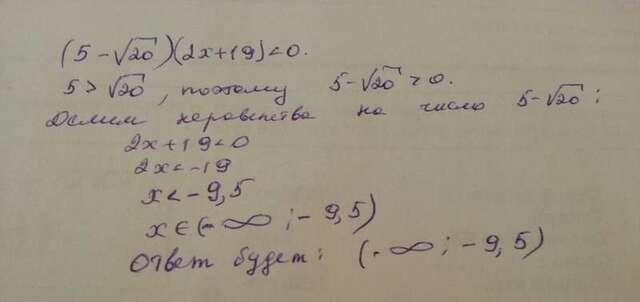 (5 - √20)(2x+19)<0.
5 > √20, поэтому 5-√20 > 0.
Делим неравенства на число 5-√20:
2x+19<0
2x<-19
x<-9,5
x∈(-∞;-9,5)
Ответ будет: (-∞;-9,5)